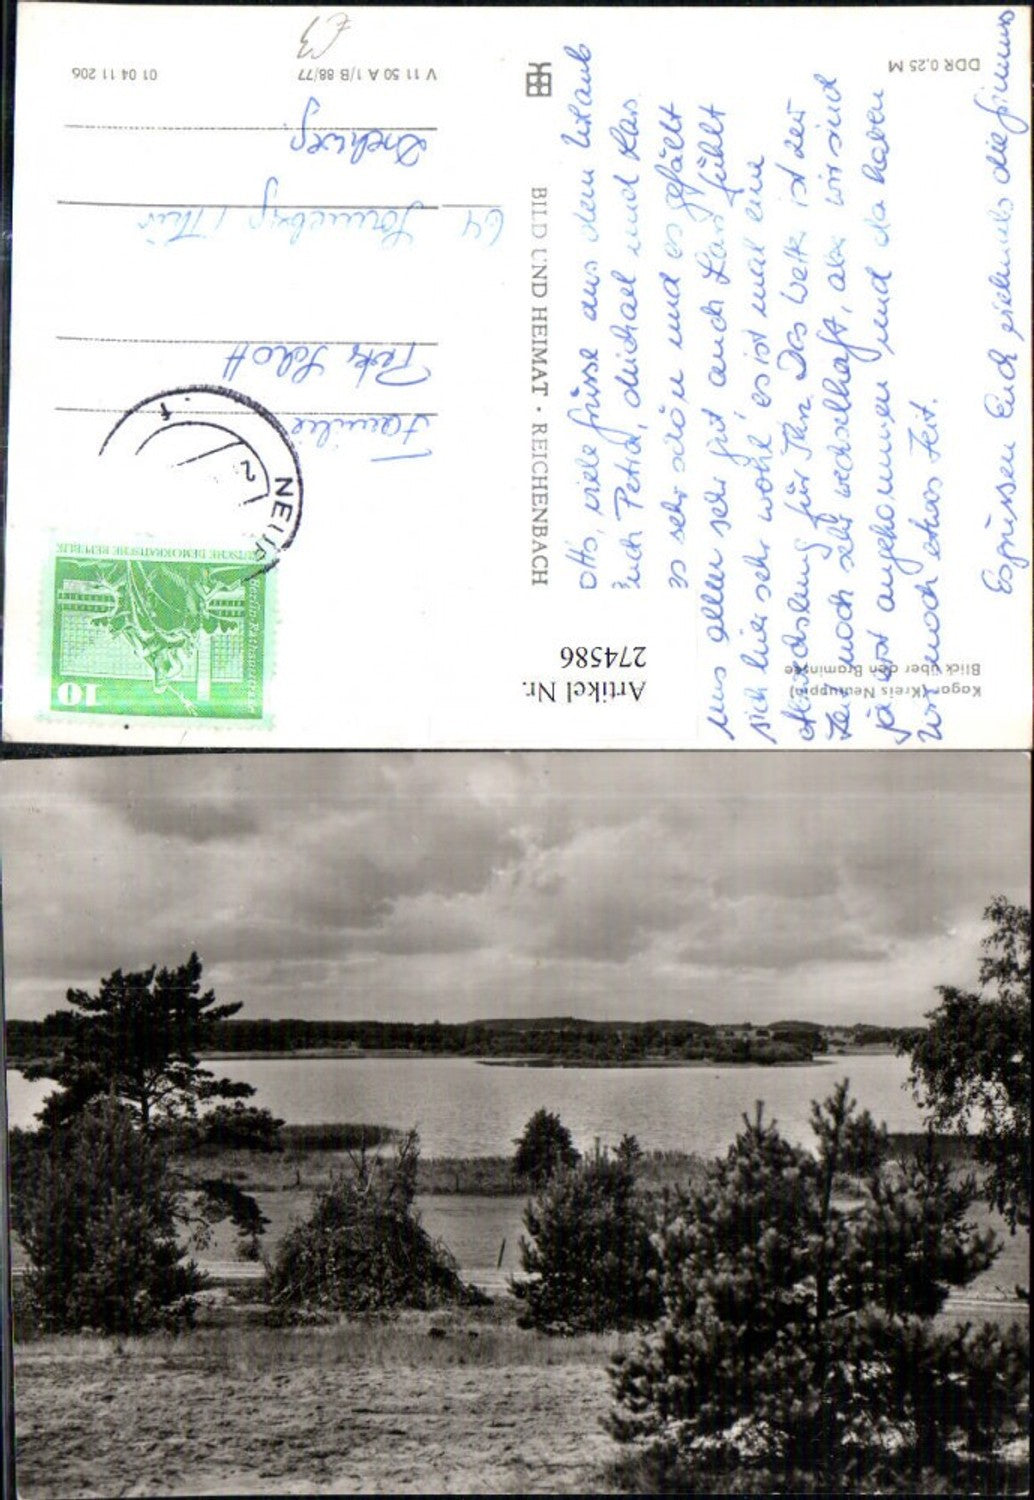 Kagar (Kreis Neuruppin)
Blick über den Braminsee
DDR 0,25 M
Otto, viele Grüsse aus dem Urlaub
Euch Petra, Michael und Lars.
Es sehr schön und es gefällt
uns allen sehr gut, auch Lars fühlt
sich hier sehr wohl, es ist mal eine
für Ihn. Das Wetter ist zur
Zeit noch sehr wechselhaft, aber wir sind
ja erst angekommen und da haben
wir noch etwas Zeit.
Es grüssen Euch die
Artikel Nr.
274586
BILD UND HEIMAT · REICHENBACH
10
Berlin-Rathausstraße
DEUTSCHE DEMOKRATISCHE REPUBLIK
Familie
Schott
64 Sonneberg / Thür
V 11 50 A 1/B 88/77
01 04 11 206